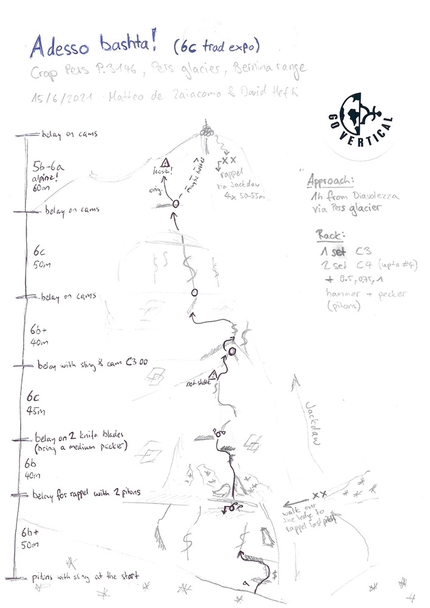 Adesso bashta! (6c trad expo)
Crap Pers P.3146, Pers glacier, Bernina range
15/6/2021 Matteo de Zaiacomo & David Hefti
GO VERTICAL
belay on cams
5b-6a
alpine!
60m
belay on cams
XX
rappel
via Jackdaw
4x 50-55m
Approach:
1h from Diavolezza
via Pers glacier
Rack:
1 set C3
2 set C4 (upto #4)
+ 0.5, 0.75, 1
hammer + pecker
(pitons)
6c
50m
belay on cams
6b+
40m
belay with sling & cam C3 00
6c
45m
Jackdaw
belay on 2 knife blades
(bring a medium pecker)
6b
40m
belay for rappel with 2 pitons
XX
walk over
the ledge to
rappel last pitch
6b+
50m
pitons with sling at the start